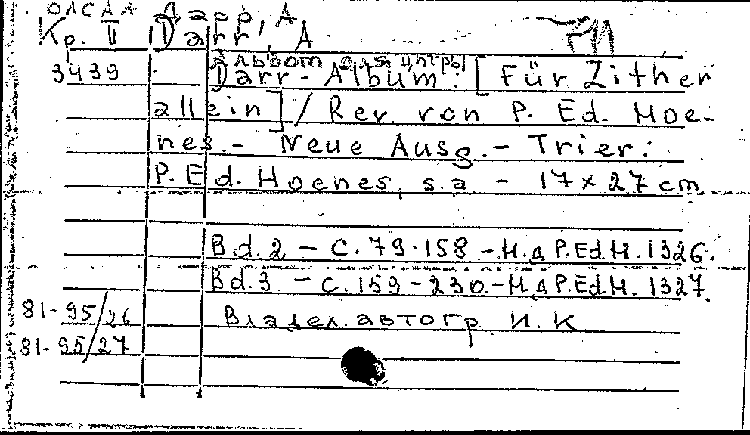 ОЛСАА Дарр, А
Кр. II Darr, A
Альбом для цитры
3439 Darr-Album: [Für Zither
allein] / Rev. von P. Ed. Hoe-
nes. - Neue Ausg. - Trier:
P. Ed. Hoenes, s.a - 17 x 27 cm
Bd. 2 - С. 79-158 - Н.д P.Ed.H. 1326.
Bd. 3 - С. 159-230. - Н.д P.Ed.H. 1327.
81-95/26 Владел. автогр. И. К
81-95/27